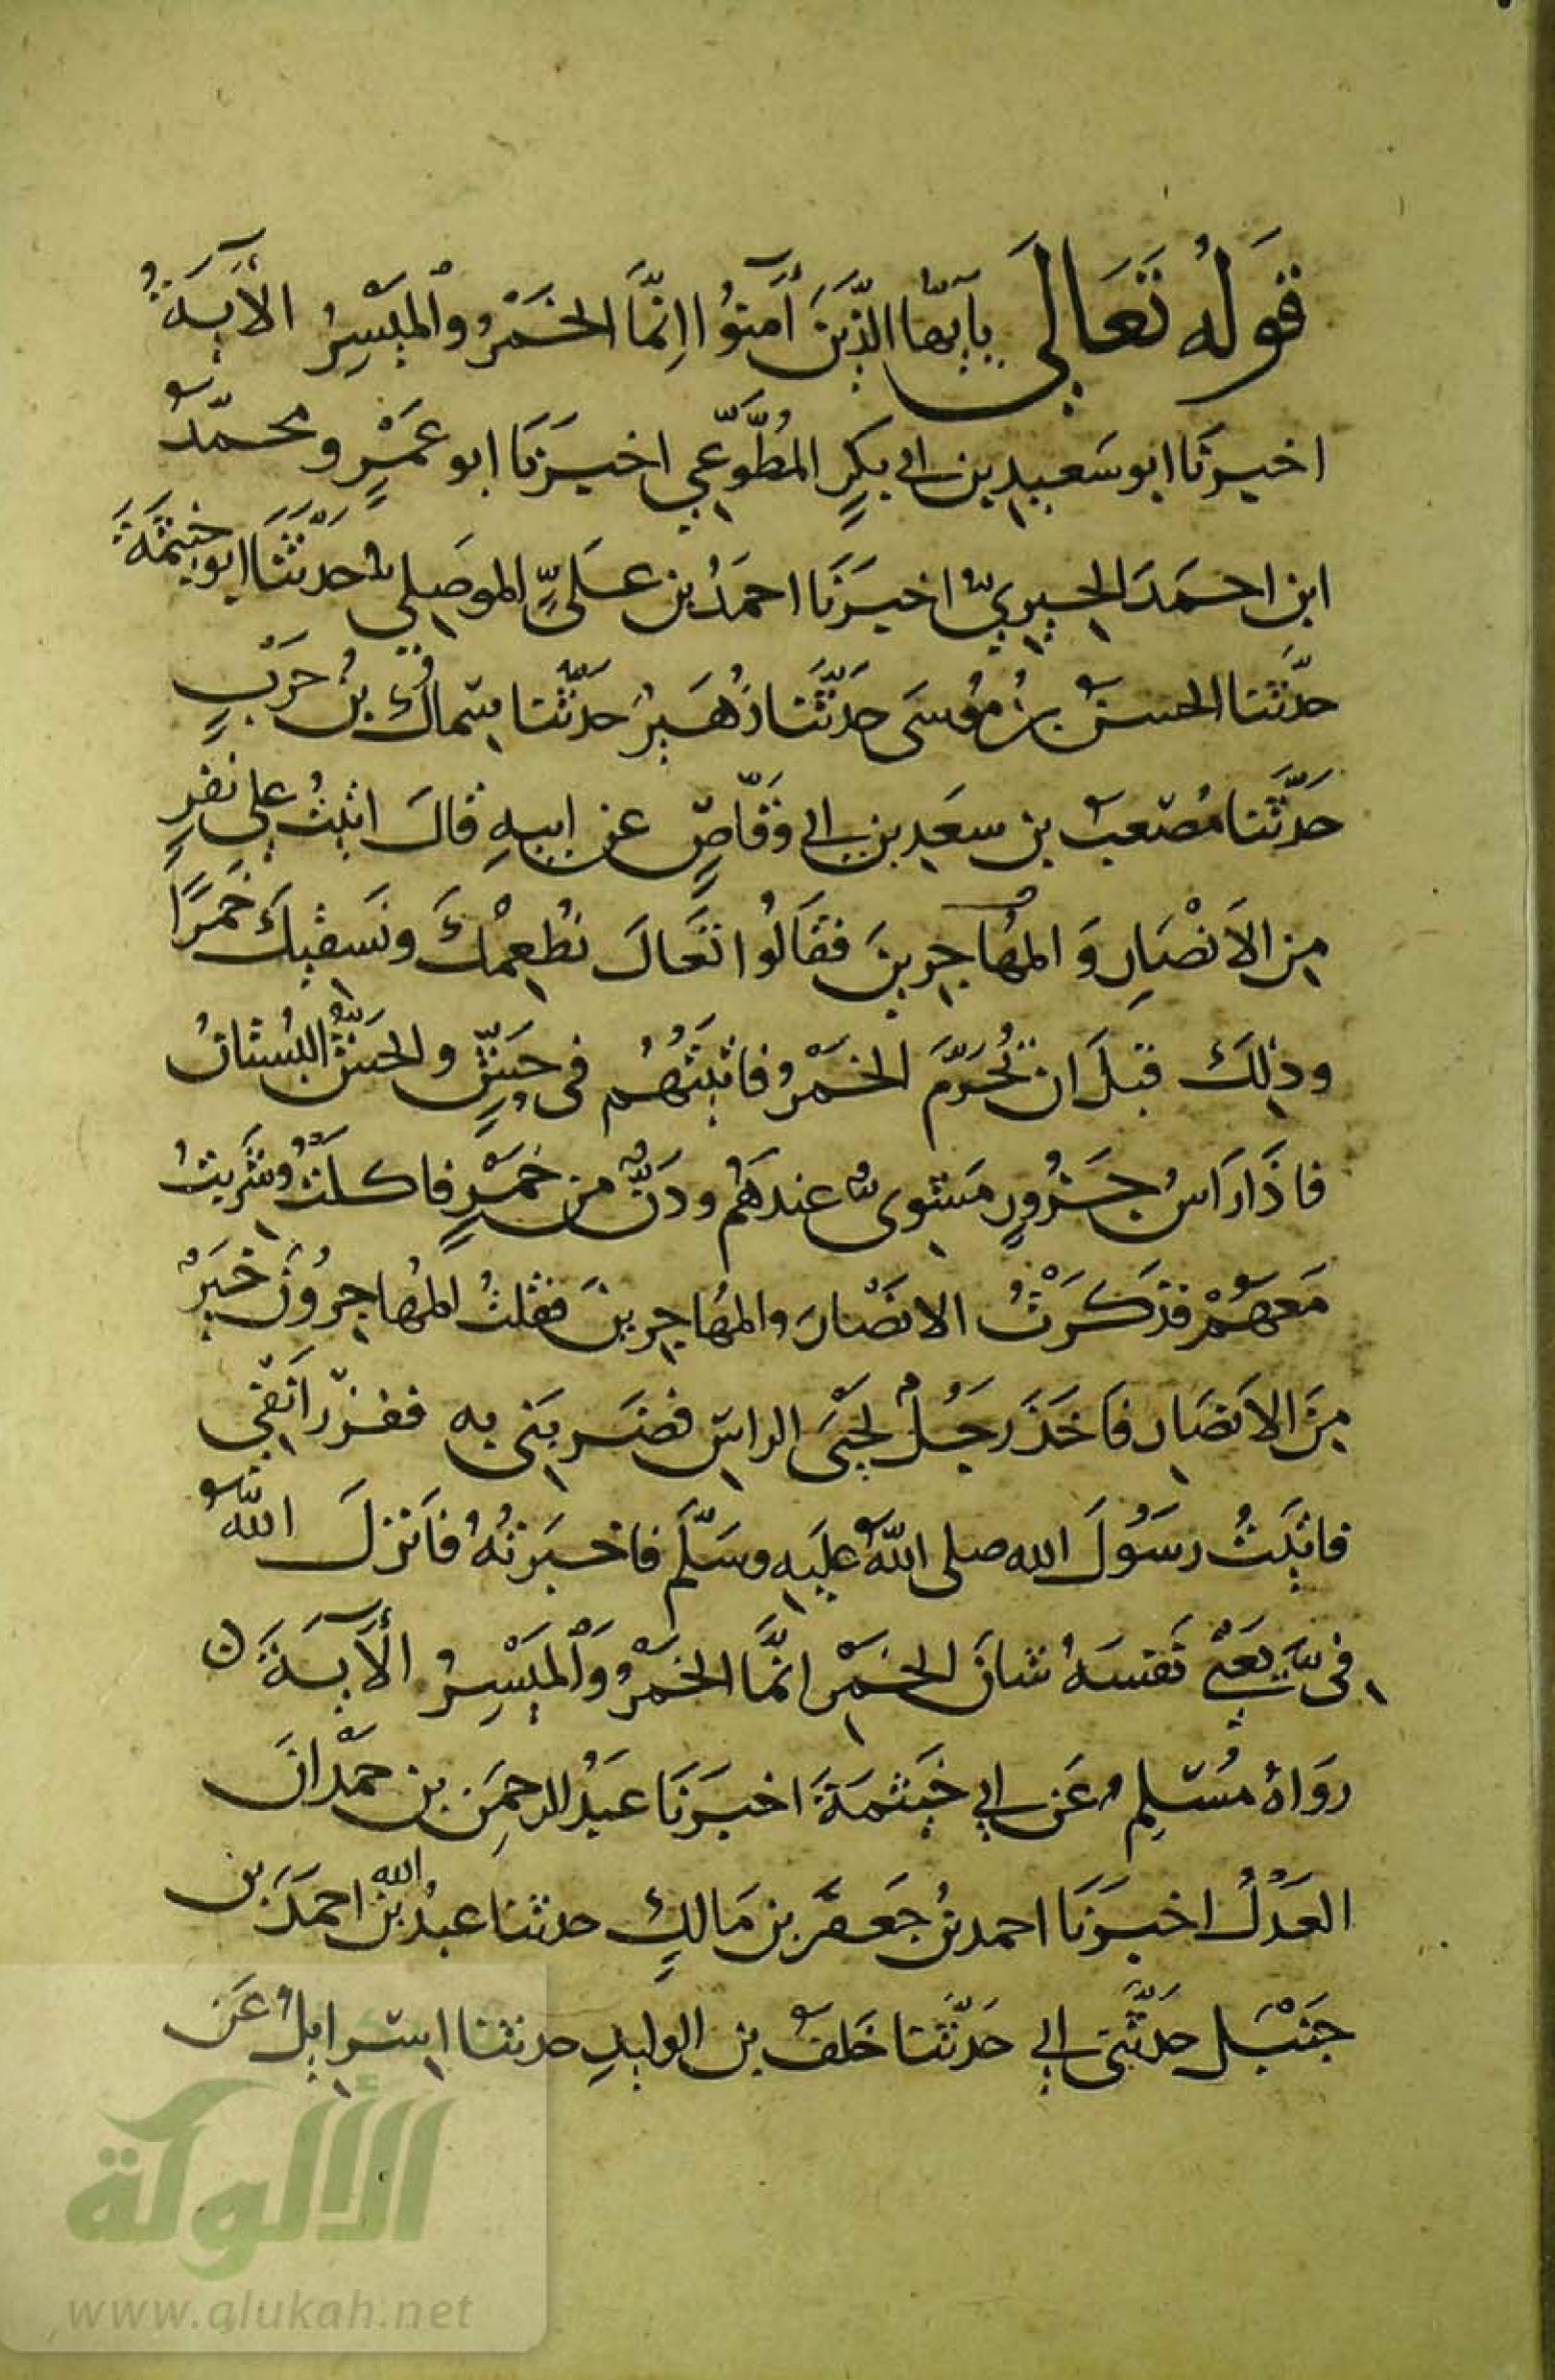 قَولُهُ تَعَالَى يَا أَيُّهَا الَّذِينَ آمَنُوا اِنَّمَا الخَمْرُ وَالمَيْسِرُ الآيَةَ
اخبرنَا ابو سَعِيدِ بن ابي بكرٍ المُطَّوِّعِي اخبَرَنَا ابو عَمْرٍو محمّدٌ
ابن احمَدَ الحِيرِيُّ اخبَرَنَا احمَدُ بن عَلِيٍّ الموصِلي حَدَّثَنَا ابو خَيثَمَةَ
حدَّثَنا الحسنُ بنُ مُوسَى حَدَّثَنا زُهَيرُ حَدَّثَنا سِماكُ بنُ حَرْبٍ
حَدَّثَنا مُصْعَبُ بن سعَدِ بن ابي وَقّاصٍ عن ابيهِ قالَ اتيتُ علي نفرٍ
مِن الاَنْصَارِ وَالمُهاجِرِينَ فقَالُوا تَعَالَ نُطْعِمْكَ ونَسقيكَ خَمرًا
وذلِكَ قبلَ ان تُحَرَّمَ الخَمْرُ فاتيتُهُم في حَشٍّ والحَشُّ البُستانُ
فاذَا رَاسُ جَزُورٍ مَشوىٌّ عندَهُم ودَنٌّ من خَمْرٍ فاكلتُ وشَرِبتُ
مَعهُمْ فذكَرْتُ الانصَارَ والمهَاجِرينَ فقلتُ المُهاجِرُونَ خَيرٌ
مِنَ الاَنصَارِ فَاخَذَ رَجُلٌ لَحْيَىَ الراسِ فضَربَنى به ففزر اَنفِي
فاتَيتُ رسُولَ الله صلى اللهُ عليَهِ وسَلَّم فاخبَرتُهُ فاَنزلَ اللهُ
فيَّ يَعْنِي نَفسَهُ شانَ الخَمْرِ انَّمَا الخَمْرُ وَالمَيْسِرُ الآيَةَ ن
روَاهُ مُسْلِمٌ عَن ابي خَيثمَةَ اخبَرَنَا عَبدُ الرحمَنِ بن حَمْدَانَ
العَدْلُ اخبَرَنَا احمد بنُ جَعفَر بن مَالكٍ حدثنا عبدُ الله بن احمَدَ بن
حَنْبَلِ حَدَّثَنى ابي حَدَّثَنا خَلفُ بن الوليدِ حدثنا اسرايلُ عَن
الألوكة
www.alukah.net